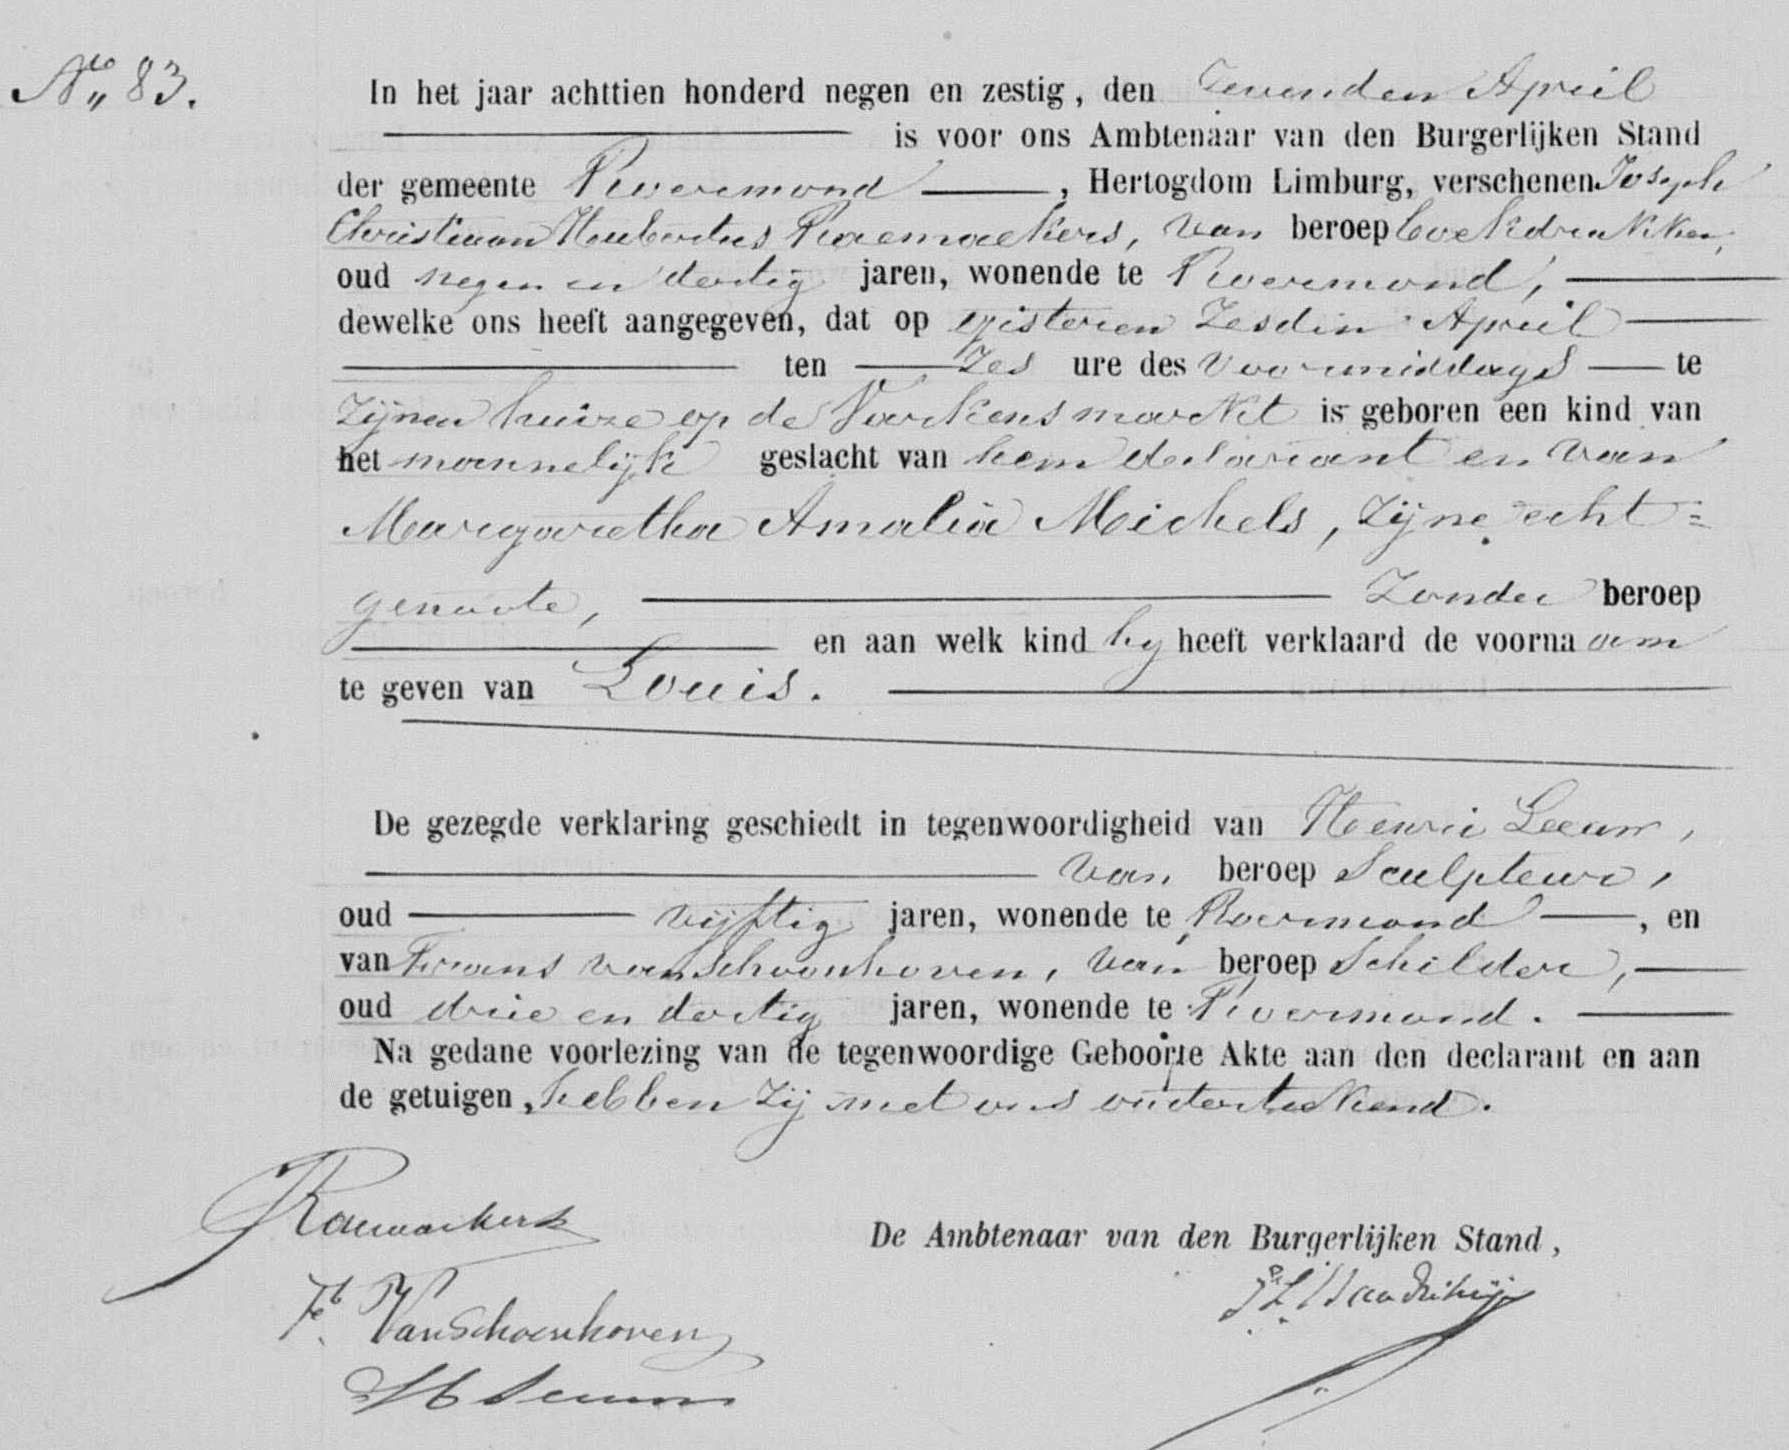 No 83.
In het jaar achttien honderd negen en zestig, den Zevenden April
is voor ons Ambtenaar van den Burgerlijken Stand
der gemeente Roermond, Hertogdom Limburg, verschenen Joseph
Christiaan Hubertus Raemaekers, van beroep boekdrukker,
oud negen en dertig jaren, wonende te Roermond,
dewelke ons heeft aangegeven, dat op gisteren Zesden April
ten Zes ure des Voormiddags te
Zijnen huize op de Varkensmarkt is geboren een kind van
het mannelijk geslacht van hem declarant en van
Margaretha Amalia Michels, Zijne echt=
genoote, Zonder beroep
en aan welk kind hy heeft verklaard de voorna am
te geven van Louis.
De gezegde verklaring geschiedt in tegenwoordigheid van Henri Leeuw,
van beroep Sculpteur,
oud vijftig jaren, wonende te Roermond, en
van Frans van Schoonhoven, van beroep Schilder,
oud drie en dertig jaren, wonende te Roermond.
Na gedane voorlezing van de tegenwoordige Geboorte Akte aan den declarant en aan
de getuigen, hebben Zij met ons onderteekend.
Raemaekers
De Ambtenaar van den Burgerlijken Stand,
Fs VanSchoonhoven
H Leeuw